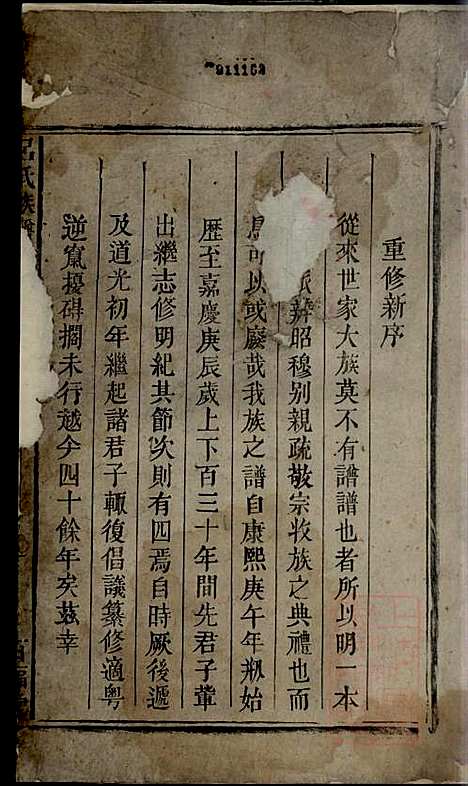 911162
重修新序
從來世家大族莫不有譜譜也者所以明一本
派辨昭穆别親疏敬宗收族之典禮也而
可以或廢哉我族之譜自康熙庚午年剏始
歷至嘉慶庚辰歲上下百三十年間先君子輩
出繼志修明紀其節次則有四焉自時厥後遞
及道光初年繼起諸君子輙復倡議纂修適粤
逆竄擾碍擱未行越今四十餘年矣茲幸
呂氏族譜